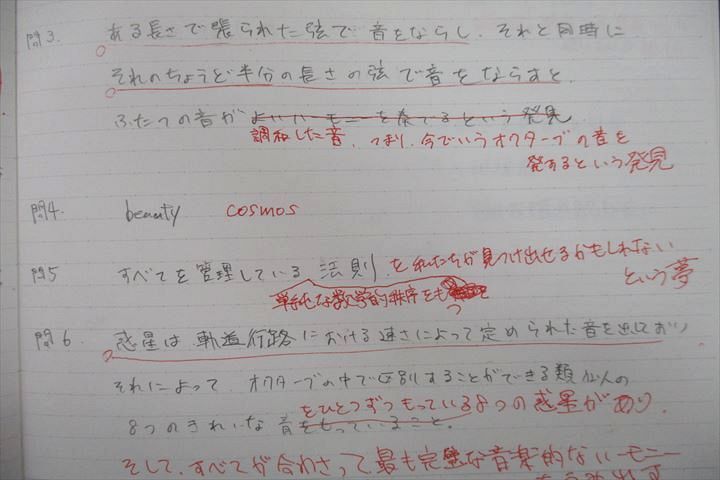 問3. ある長さで張られた弦で音をならし、それと同時に
それのちょうど半分の長さの弦で音をならすと、
ふたつの音がよいハーモニーを奏でるという発見
調和した音、つまり、今でいうオクターブの音を
発するという発見
問4. beauty cosmos
問5 すべてを管理している法則を私たちが見つけ出せるかもしれない
という夢
単純な数学的秩序をもつ
問6. 惑星は軌道行路における速さによって定められた音を出しており
それによって、オクターブの中で区別することができる類似の
をひとつずつもっている8つの惑星があり、
8つのきれいな音をもっていること。
そして、すべてが合わさって最も完璧な音楽的なハーモニー